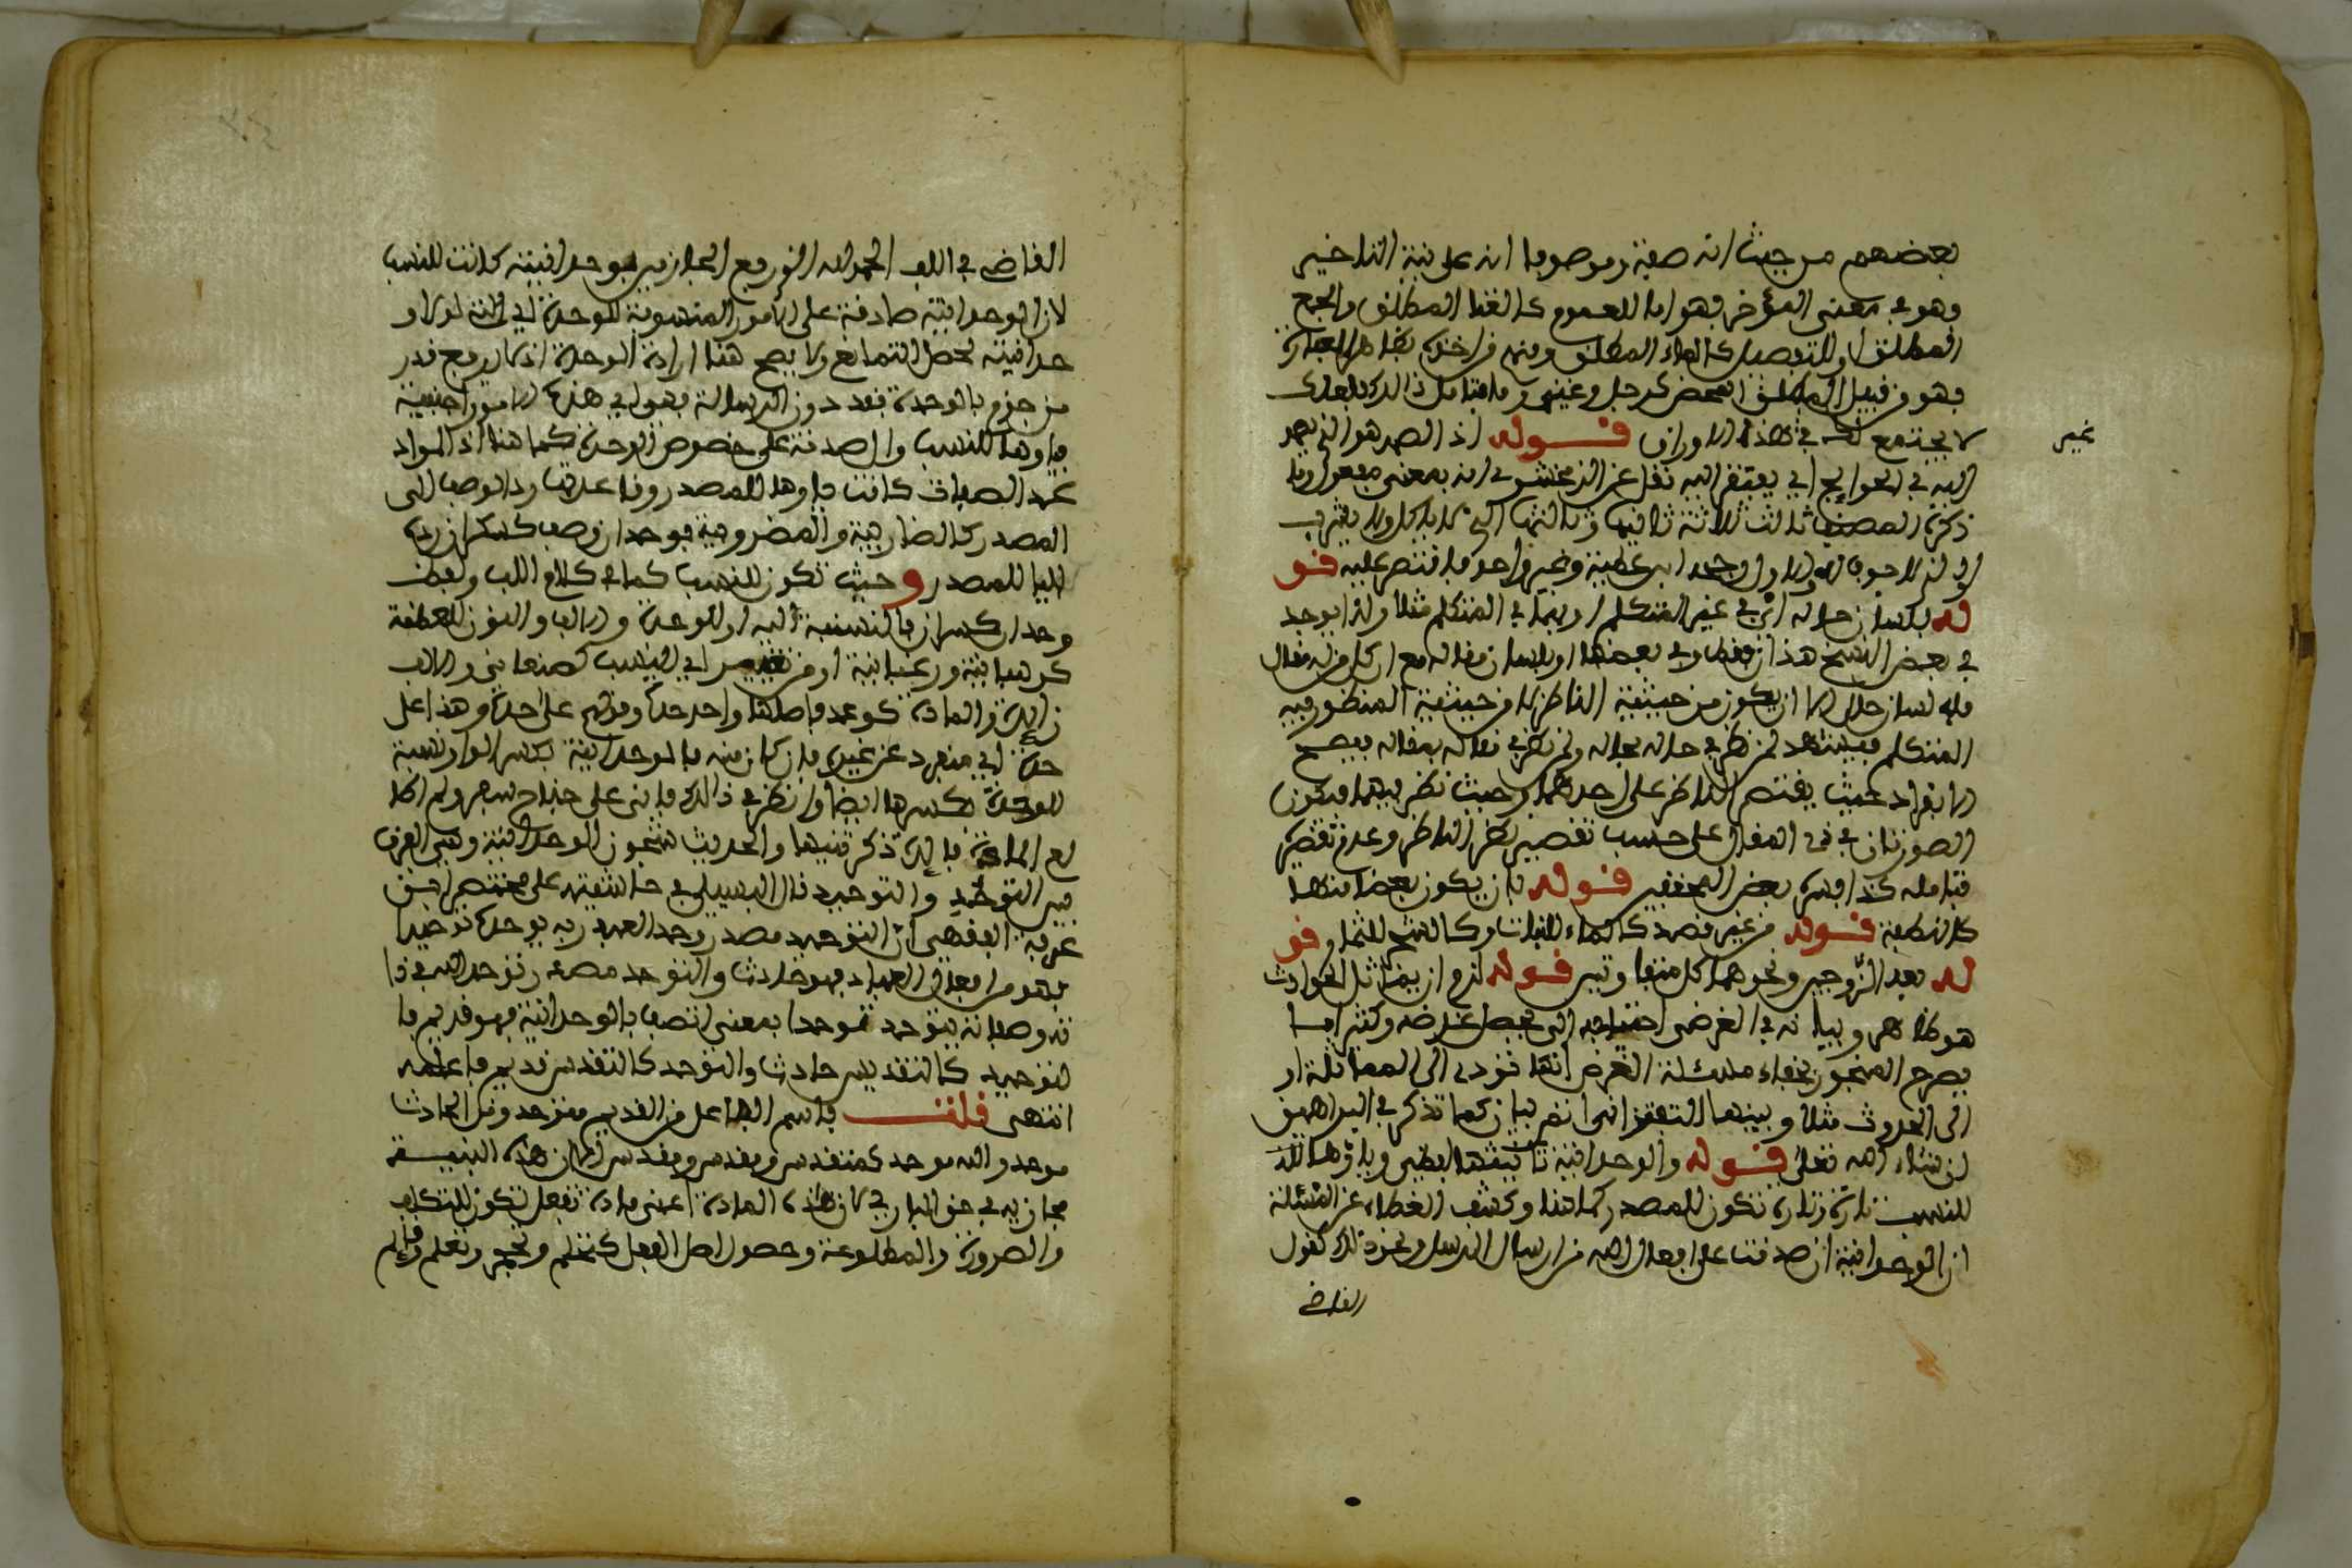 بعضهم من حيث انه صفة وموصوفها انه على نية التاخير
وهو في معنى المؤخر فهو اما للعموم كالغنا المطلق والجمع
المطلق او للتفصيل كالماء المطلق ومنهم من اخذه بظاهر العبارة
فهو من قبيل المطلق المحض كرجل وغيره فتامل ذالك فلعلك
لا تجتمع به في هذه الاوراق قوله اذ الصمد هو الذي يصمد
غير
اليه في الحوائج اي يفتقر اليه نقل عن الزمخشري انه بمعنى مفعول وما
ذكره المصنف ثالث ثلاثة ثانيها وثالثها الذي لا ياكل ولا يشرب
الذي لا جوف له والاول وجهه ابن عطية وغير واحد فاقتصر عليه قو
له بلسان حاله اي في غير المتكلم او ربما في المتكلم مثلا ولذا يوجد
في بعض النسخ هذان فقط وفي بعضها او بلسان مقاله مع ان كل من له مقال
فله لسان حال الا ان يكون من حيثية الناظر لا من حيثية المنظور فيه
المتكلم فيشهد لمن نظر في حاله بحاله ولمن نظر في مقاله بمقاله فيصح
الانفراد حيث يقتصر الناظر على احدهما وحيث نظر فيهما فتكون
الصورتان في ذي المقال على حسب تقصير نظر الناظر وعدم تقصيره
فتامله كذا فسره بعض المحققين قوله بان يكون بعضا منها
كالنطفة قوله من غير قصد كالماء للنبات وكالشمع للثمار قو
له بعد الزوجين ونحوهما كل منها وتين قوله لزم ان يماثل الحوادث
هو ظاهر وبيانه في الغرض احتياجه الى تحصيل غرضه وكثيرا ما
يصرح المنجور بخفاء مسئلة الغرض انها تودي الى المماثلة او
الى الحدوث مثلا وبينها التفتزاني اتم بيان كما تذكر في البراهين
ان شاء الله تعلى قوله والوحدانية تا ... وياؤها
للنسب تارة وتارة تكون للمصدر كما هنا وكشف الغطاء عن المسئلة
ان الوحدانية ان صدقت على افعال الله من ارسال الرسل ونحو ذلك كقول
القاضي
القاضي في اللب الحمد لله الذي رفع الحجاز بين بوحدانيته كانت للنسب
لان الوحدانية صادقة على الامور المنسوبة للوحدة اي
حدانيته لحصل التمانع ولا يصح هنا ارادة الوحدة اذ لا يرفع قدر
من جزم بالوحدة فقد دون الرسالة فهو اي هذه الامور اجنبية
فياوها للنسب وان صدقت على خصوص الوحدة كما هنا اذ المراد
عد الصفات كانت ياوها للمصدر وفاعدتها رد الوصف الى
المصدر كالضاربية والمضروبية فوحدان وصف كسكران زيدت
الياء للمصدر وحيث تكون للنسب كما في كلام اللب وبعض
وحدان كسران فالنسبة اليه او للوحدة والالف والنون للعظمة
كرهبانية ورعبانية او من تغيير اي النسب كصنعاني والالف
زايدة والمادة كوعد فاصلها واحد حدة وقولهم على حدة وهذا على
حدة اي منفرد عن غيره فان كان منه فالوحدانية بكسر الواو نسبة
للوحدة بكسرها ايضا وانظر في ذالك فاني على جناح سفر ولم اكا
لع المادة فايدة ذكر فيها والحديث شجون الوحدانية وهي الفرق
بين التوحد والتوحيد قال البسيلي في حاشيته على مختصر ابن
عرفة الفقهي ان التوحيد مصدر وحد العبد ربه يوحده توحيدا
فهو من افعال العباد فهو حادث والتوحد مصدر توحد الله في ذا
ته وصفاته يتوحد توحدا بمعنى اتصف بالوحدانية فهو قديم فا
لتوحيد كالتقديس حادث والتوحد كالتقدس قديم فاعلمه
انتهى قلت فاسم الفاعل من القديم متوحد ومن الحادث
موحد والله موحد كمتقدس ومقدس ومقدس الا ان هذه البنية
مجازية في حق الباري لان هذه المادة اعني مادة تفعل تكون للتكلف
والصرورة والمطاوعة وحصول اصل الفعل كتحلم وتحجر وتعلم